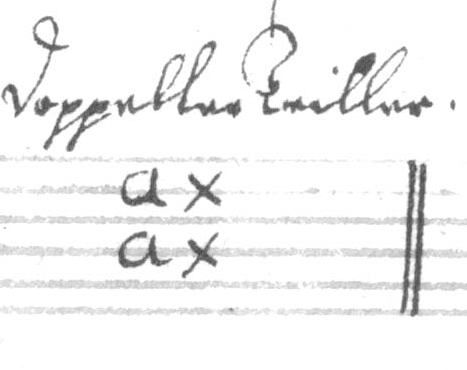 Doppelter Triller.
a x
a x